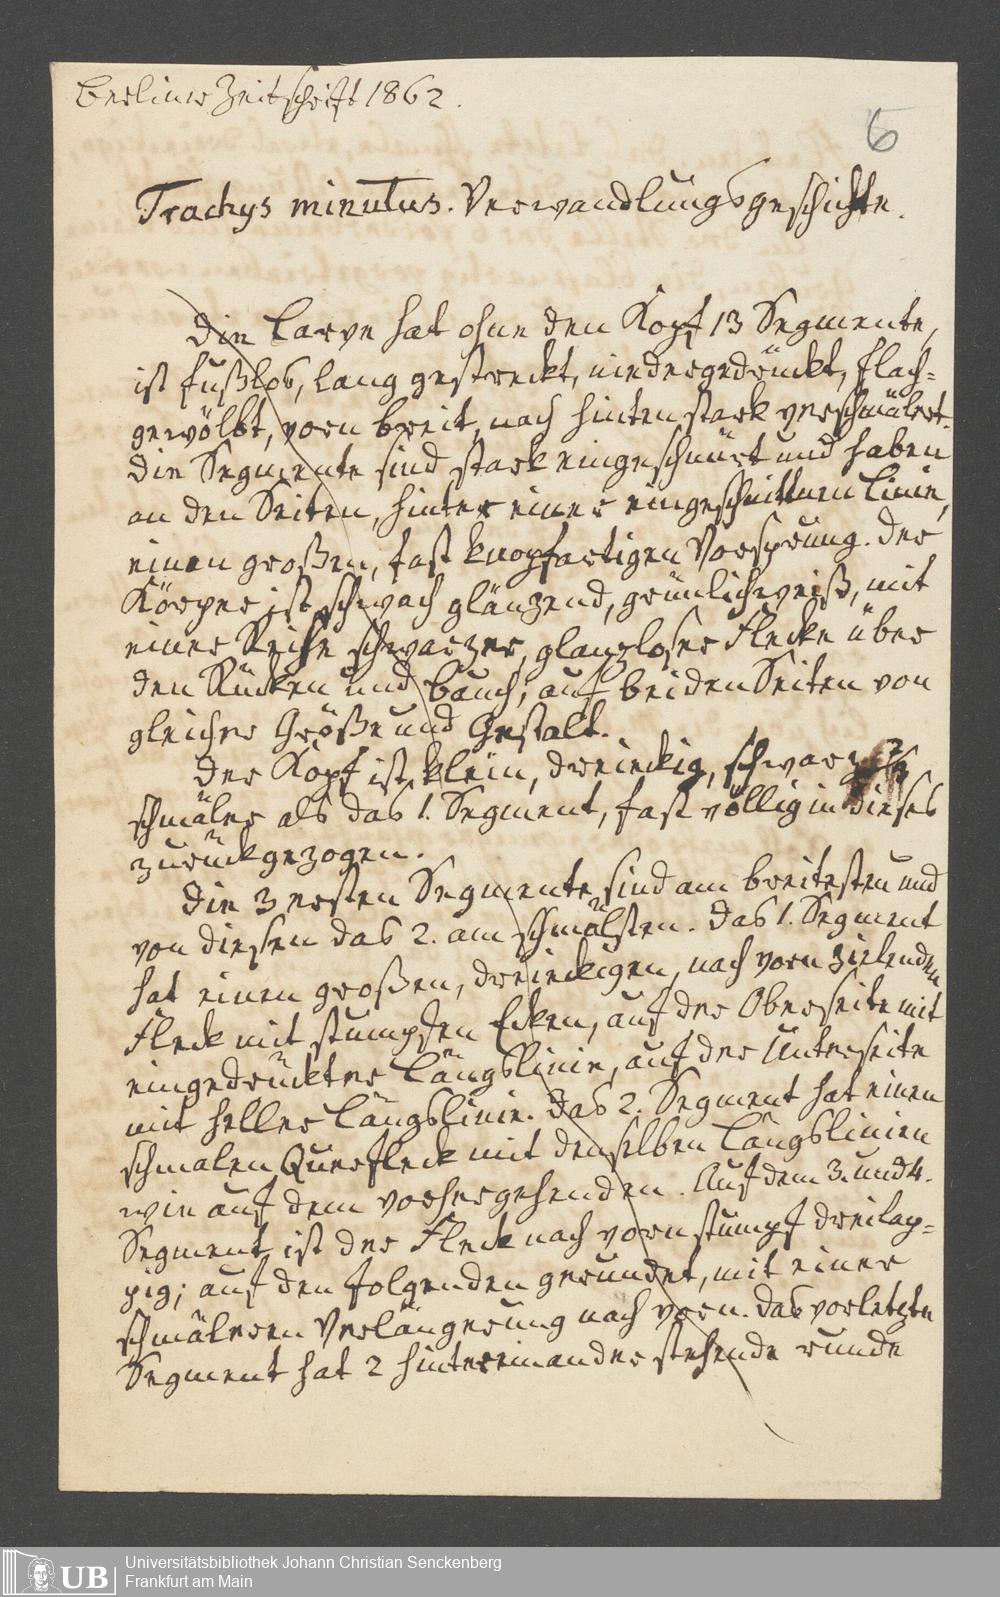 Berliner Zeitschrift 1862.
6
Trachys minutus. Verwandlungsgeschichte.
Die Larve hat ohne den Kopf 13 Segmente,
ist fußlos, lang gestreckt, niedergedrückt, flach-
gewölbt, vorn breit, nach hinten stark verschmälert.
Die Segmente sind stark eingeschnürt und haben
an den Seiten, hinter einer eingeschnittnen Linie,
einen großen, fast knopfartigen Vorsprung. Der
Körper ist schwach glänzend, grünlichweiß, mit
einer Reihe schwarzer, glanzloser Flecke über
den Rücken und Bauch, auf beiden Seiten von
gleicher Größe und Gestalt.
Der Kopf ist klein, dreieckig, schwarz,
schmäler als das 1. Segment, fast völlig in dieses
zurückgezogen.
Die 3 ersten Segmente sind am breitesten und
von diesen das 2. am schmälsten. Das 1. Segment
hat einen großen, dreieckigen, nach vorn zielenden
Fleck mit stumpfen Ecken, auf der Oberseite mit
eingedrückter Längslinie, auf der Unterseite
mit heller Längslinie. Das 2. Segment hat einen
schmalen Querfleck mit denselben Längslinien
wie auf dem vorhergehenden. Auf dem 3. und 4.
Segment ist der Fleck nach vorn stumpf dreilap-
pig; auf den folgenden gerundet, mit einer
schmäleren Verlängerung nach vorn. Das vorletzte
Segment hat 2 hintereinander stehende runde
UB
Universitätsbibliothek Johann Christian Senckenberg
Frankfurt am Main